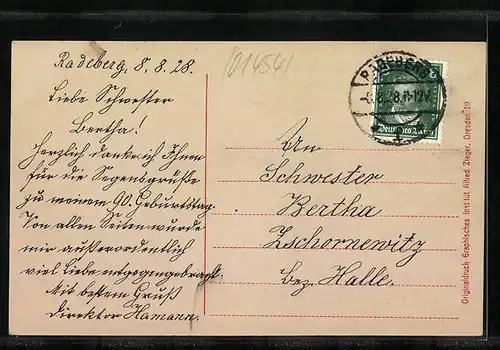 Radeberg, 8. 8. 28.
(01454)
Liebe Schwester
Bertha!
Herzlich danke ich Ihnen
für die Segensgrüße
zu meinem 90. Geburtstag.
Von allen Seiten wurde
mir außerordentlich
viel Liebe entgegengebracht.
Mit bestem Gruß
Direktor Hamann.
RADEBERG
8.28.11-12V.
Deutsches Reich
An
Schwester
Bertha
Zschornewitz
bez. Halle.
Originaldruck Graphisches Institut Alfred Zieger, Dresden 19